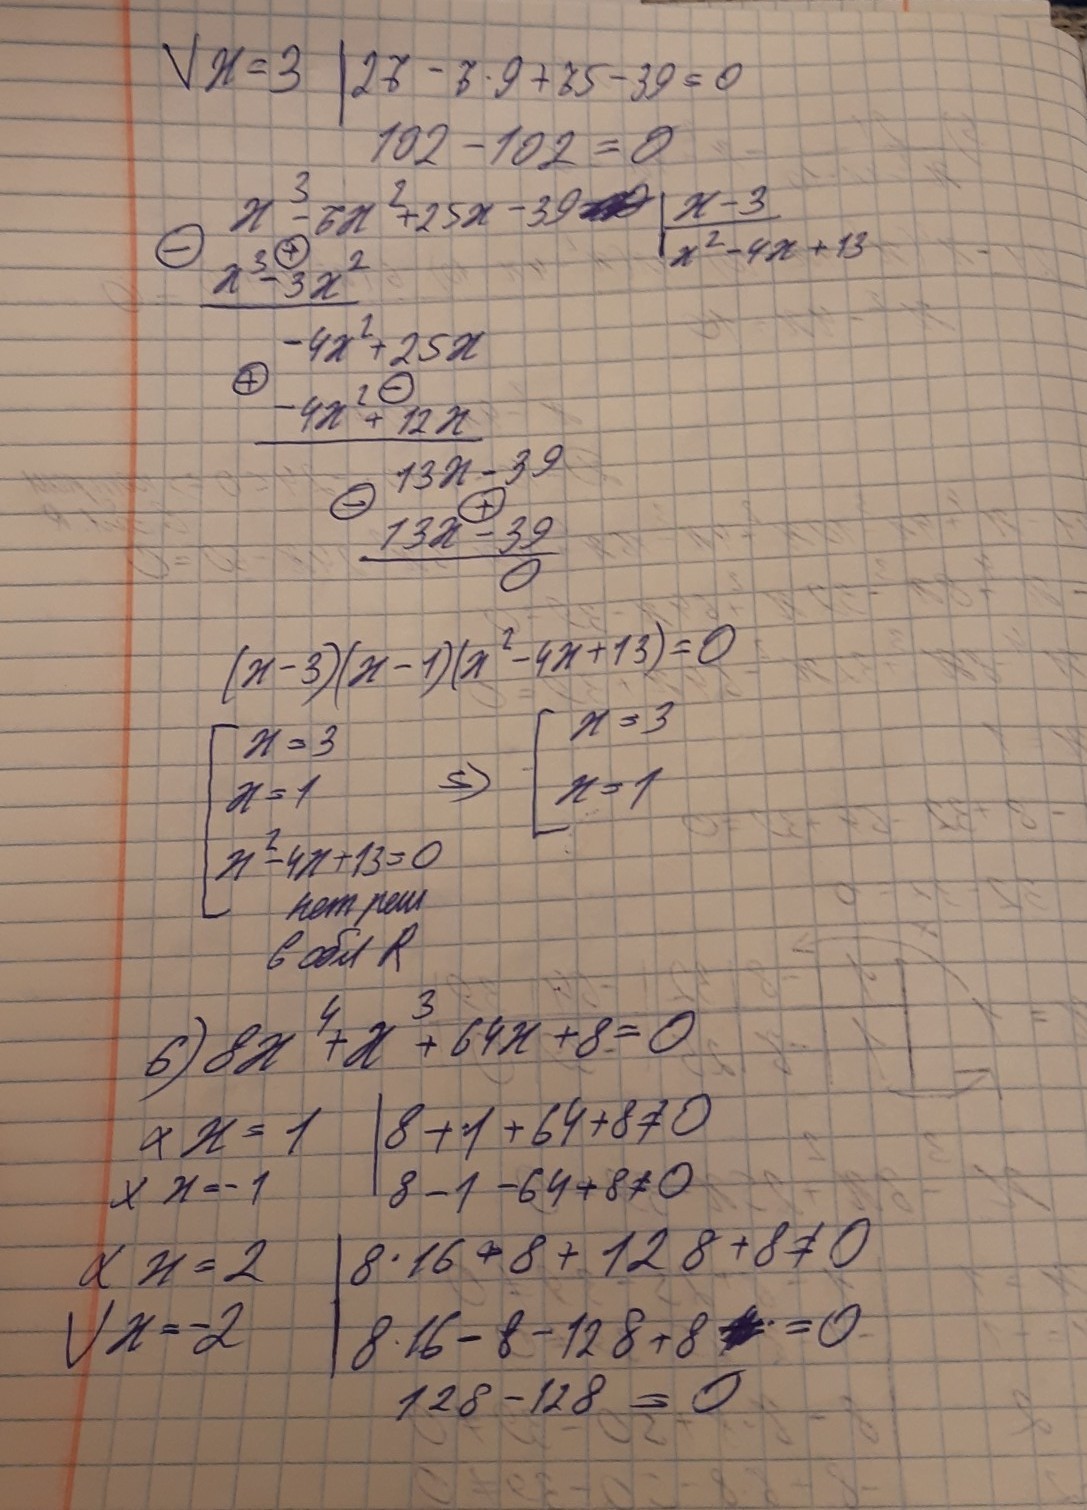 √ x = 3 | 27 - 7·9 + 75 - 39 = 0
102 - 102 = 0
x³ - 7x² + 25x - 39 | x - 3
⊖ ⊕ x² - 4x + 13
x³ - 3x²
-4x² + 25x
⊕ ⊖
-4x² + 12x
13x - 39
⊖ ⊕
13x - 39
0
(x - 3)(x - 1)(x² - 4x + 13) = 0
[ x = 3
x = 1
x² - 4x + 13 = 0
нет реш
в обл R
⇔ [ x = 3
x = 1
6) 8x⁴ + x³ + 64x + 8 = 0
x x = 1 | 8 + 1 + 64 + 8 ≠ 0
x x = -1 | 8 - 1 - 64 + 8 ≠ 0
x x = 2 | 8·16 + 8 + 128 + 8 ≠ 0
√ x = -2 | 8·16 - 8 - 128 + 8 = 0
128 - 128 = 0